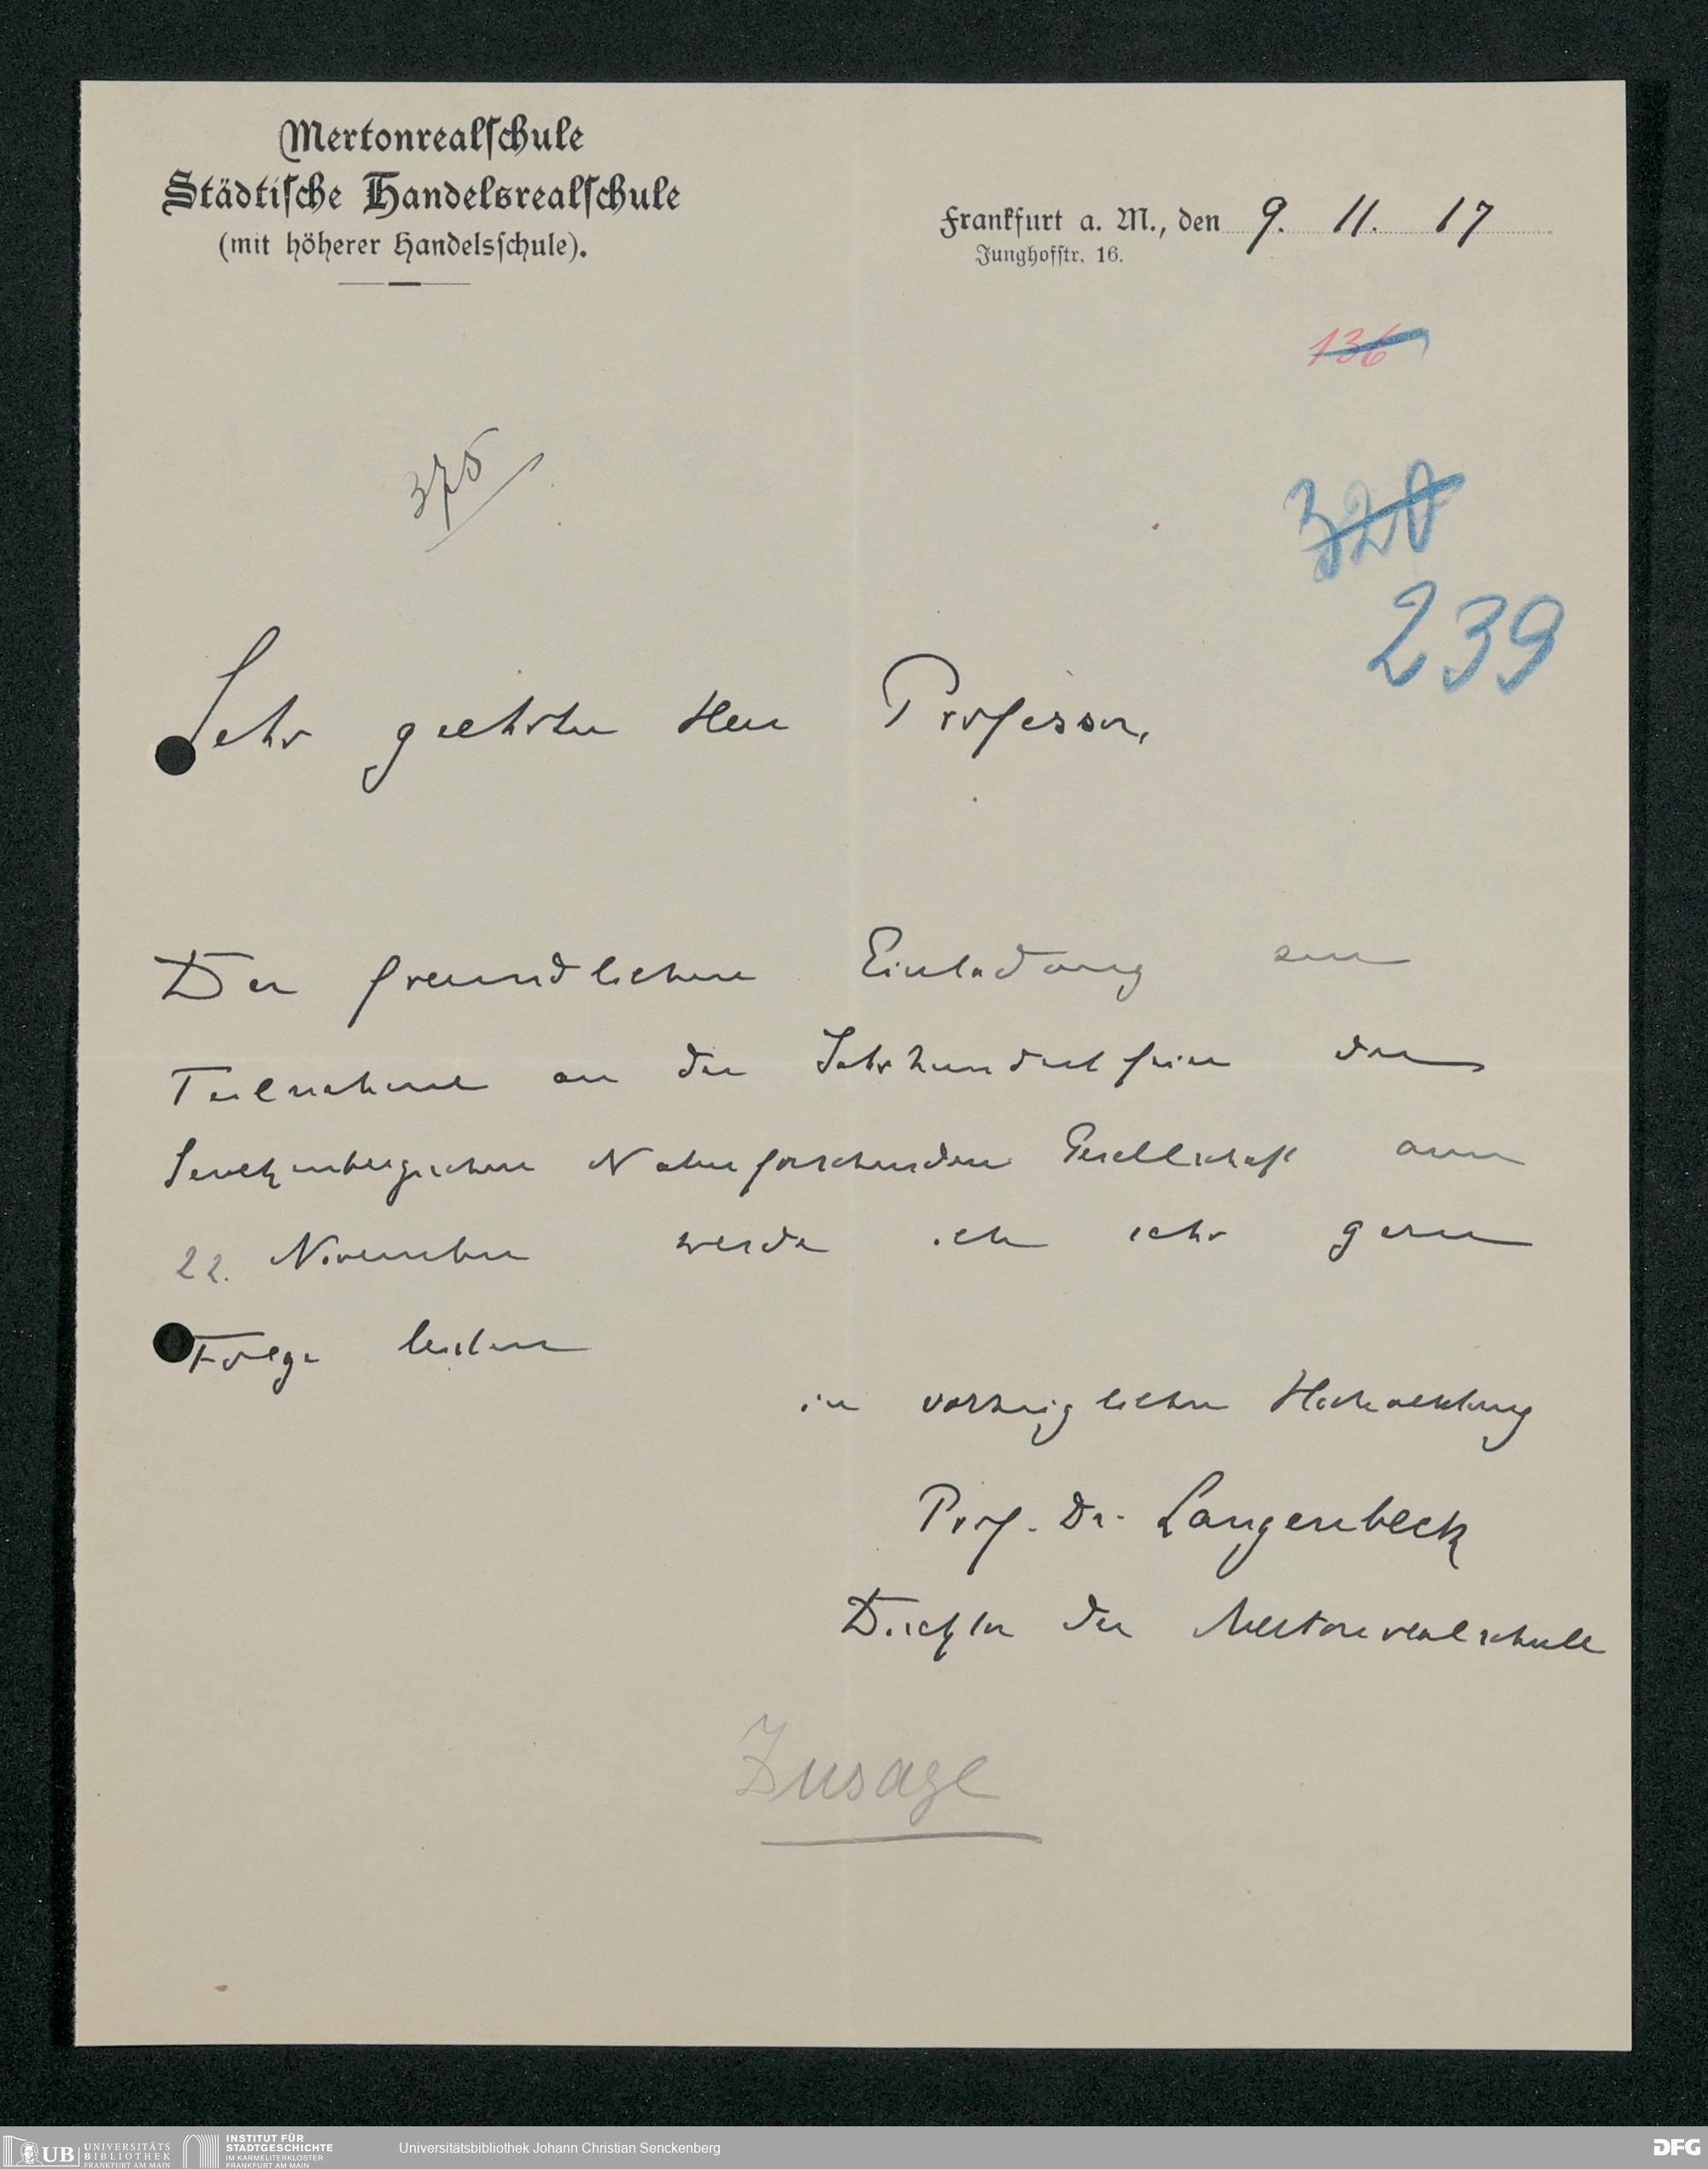 Mertonrealſchule
Städtiſche Handelsrealſchule
(mit höherer Handelsſchule).
Frankfurt a. M., den 9. 11. 17
Junghofſtr. 16.
136
375
320
239
Sehr geehrter Herr Professor,
Der freundlichen Einladung zur
Teilnahme an der Jahrhundertfeier der
Senckenbergischen Naturforschenden Gesellschaft am
22. November werde ich sehr gern
Folge leisten
in vorzüglicher Hochachtung
Prof. Dr. Langenbeck
Direktor der Mertonrealschule
Zusage
UB UNIVERSITÄTS
BIBLIOTHEK
FRANKFURT AM MAIN
INSTITUT FÜR
STADTGESCHICHTE
IM KARMELITERKLOSTER
FRANKFURT AM MAIN
Universitätsbibliothek Johann Christian Senckenberg
DFG